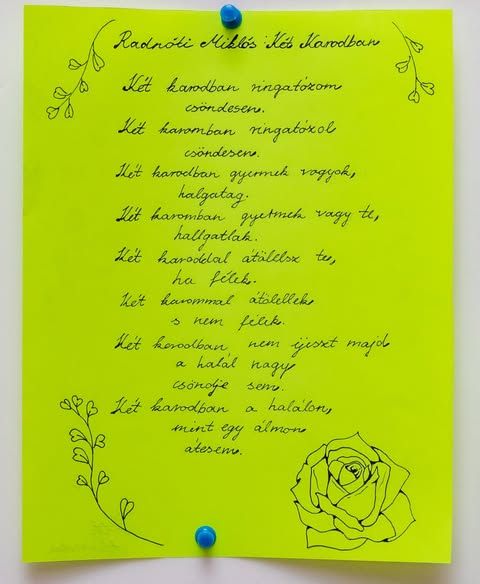 Radnóti Miklós: Két Karodban
Két karodban ringatózom
csöndesen.
Két karomban ringatózol
csöndesen.
Két karodban gyermek vagyok,
halgatag.
Két karomban gyermek vagy te,
hallgatlak.
Két karoddal átölelsz te,
ha félek.
Két karommal átölellek
s nem félek.
Két karodban nem ijeszt majd
a halál nagy
csöndje sem.
Két karodban a halálon,
mint egy álmon
átesem.